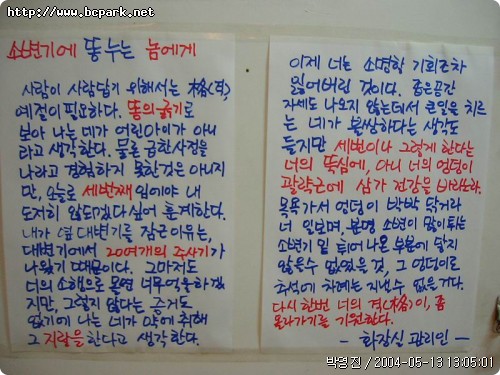 http://www.bcpark.net/
소변기에 똥누는 놈에게
사람이 사람답기 위해서는 格(격),
예절이 필요하다. 똥의 굵기로
보아 나는 네가 어린아이가 아니
라고 생각한다. 물론 급한사정을
나라고 경험하지 못한것은 아니지
만, 오늘로 세번째 일이야 내
도저히 않되겠다싶어 훈계한다.
내가 옆 대변기를 잠근 이유는,
대변기에서 20여개의 주사기가
나왔기 때문이다. 그마저도
너의 소행으로 몰면 너무 억울하겠
지만, 그렇지 않다는 증거도
없기에 나는 네가 약에 취해
그 지랄을 한다고 생각한다.
이제 너는 소명할 기회조차
잃어버린 것이다. 좁은공간
자세도 나오지 않는데서 큰일을 치르
는 네가 불쌍하다는 생각도
들지만 세번이나 그렇게 한다는
너의 뚝심에, 아니 너의 엉덩이
괄약근에 삼가 건강을 바라노라.
목욕가서 엉덩이 박박 닦거라
너 임보며, 분명 소변이 많이튀는
소변기 밑 튀어나온 부분에 닿지
않을수 없었을 것, 그 엉덩이로
추석에 차례는 지낼수 없을거다.
다시한번 너의 격(格)이, 좀
올라가기를 기원한다.
- 화장실 관리인 -
박영진 / 2004-05-13 13:05:01